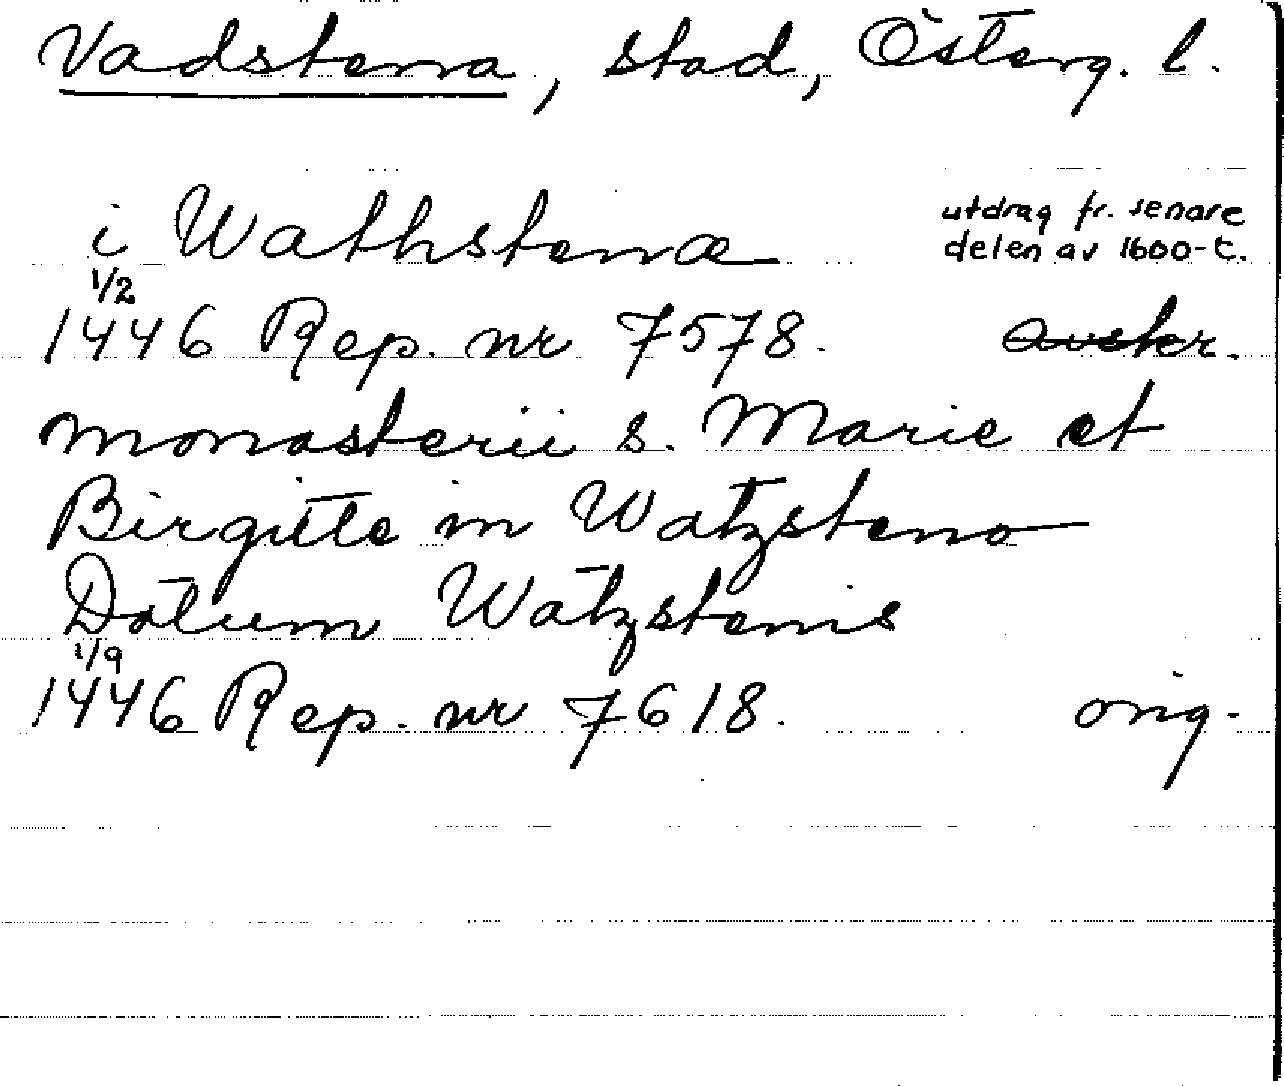 Vadstena, stad, Österg. l.
i Wathstena utdrag fr. senare
delen av 1600-t.
1/2
1446 Rep. nr 7578. avskr.
monasterii s. Marie et
Birgitte in Watzsteno
Datum Watzstenis
1/9
1446 Rep. nr 7618. orig.